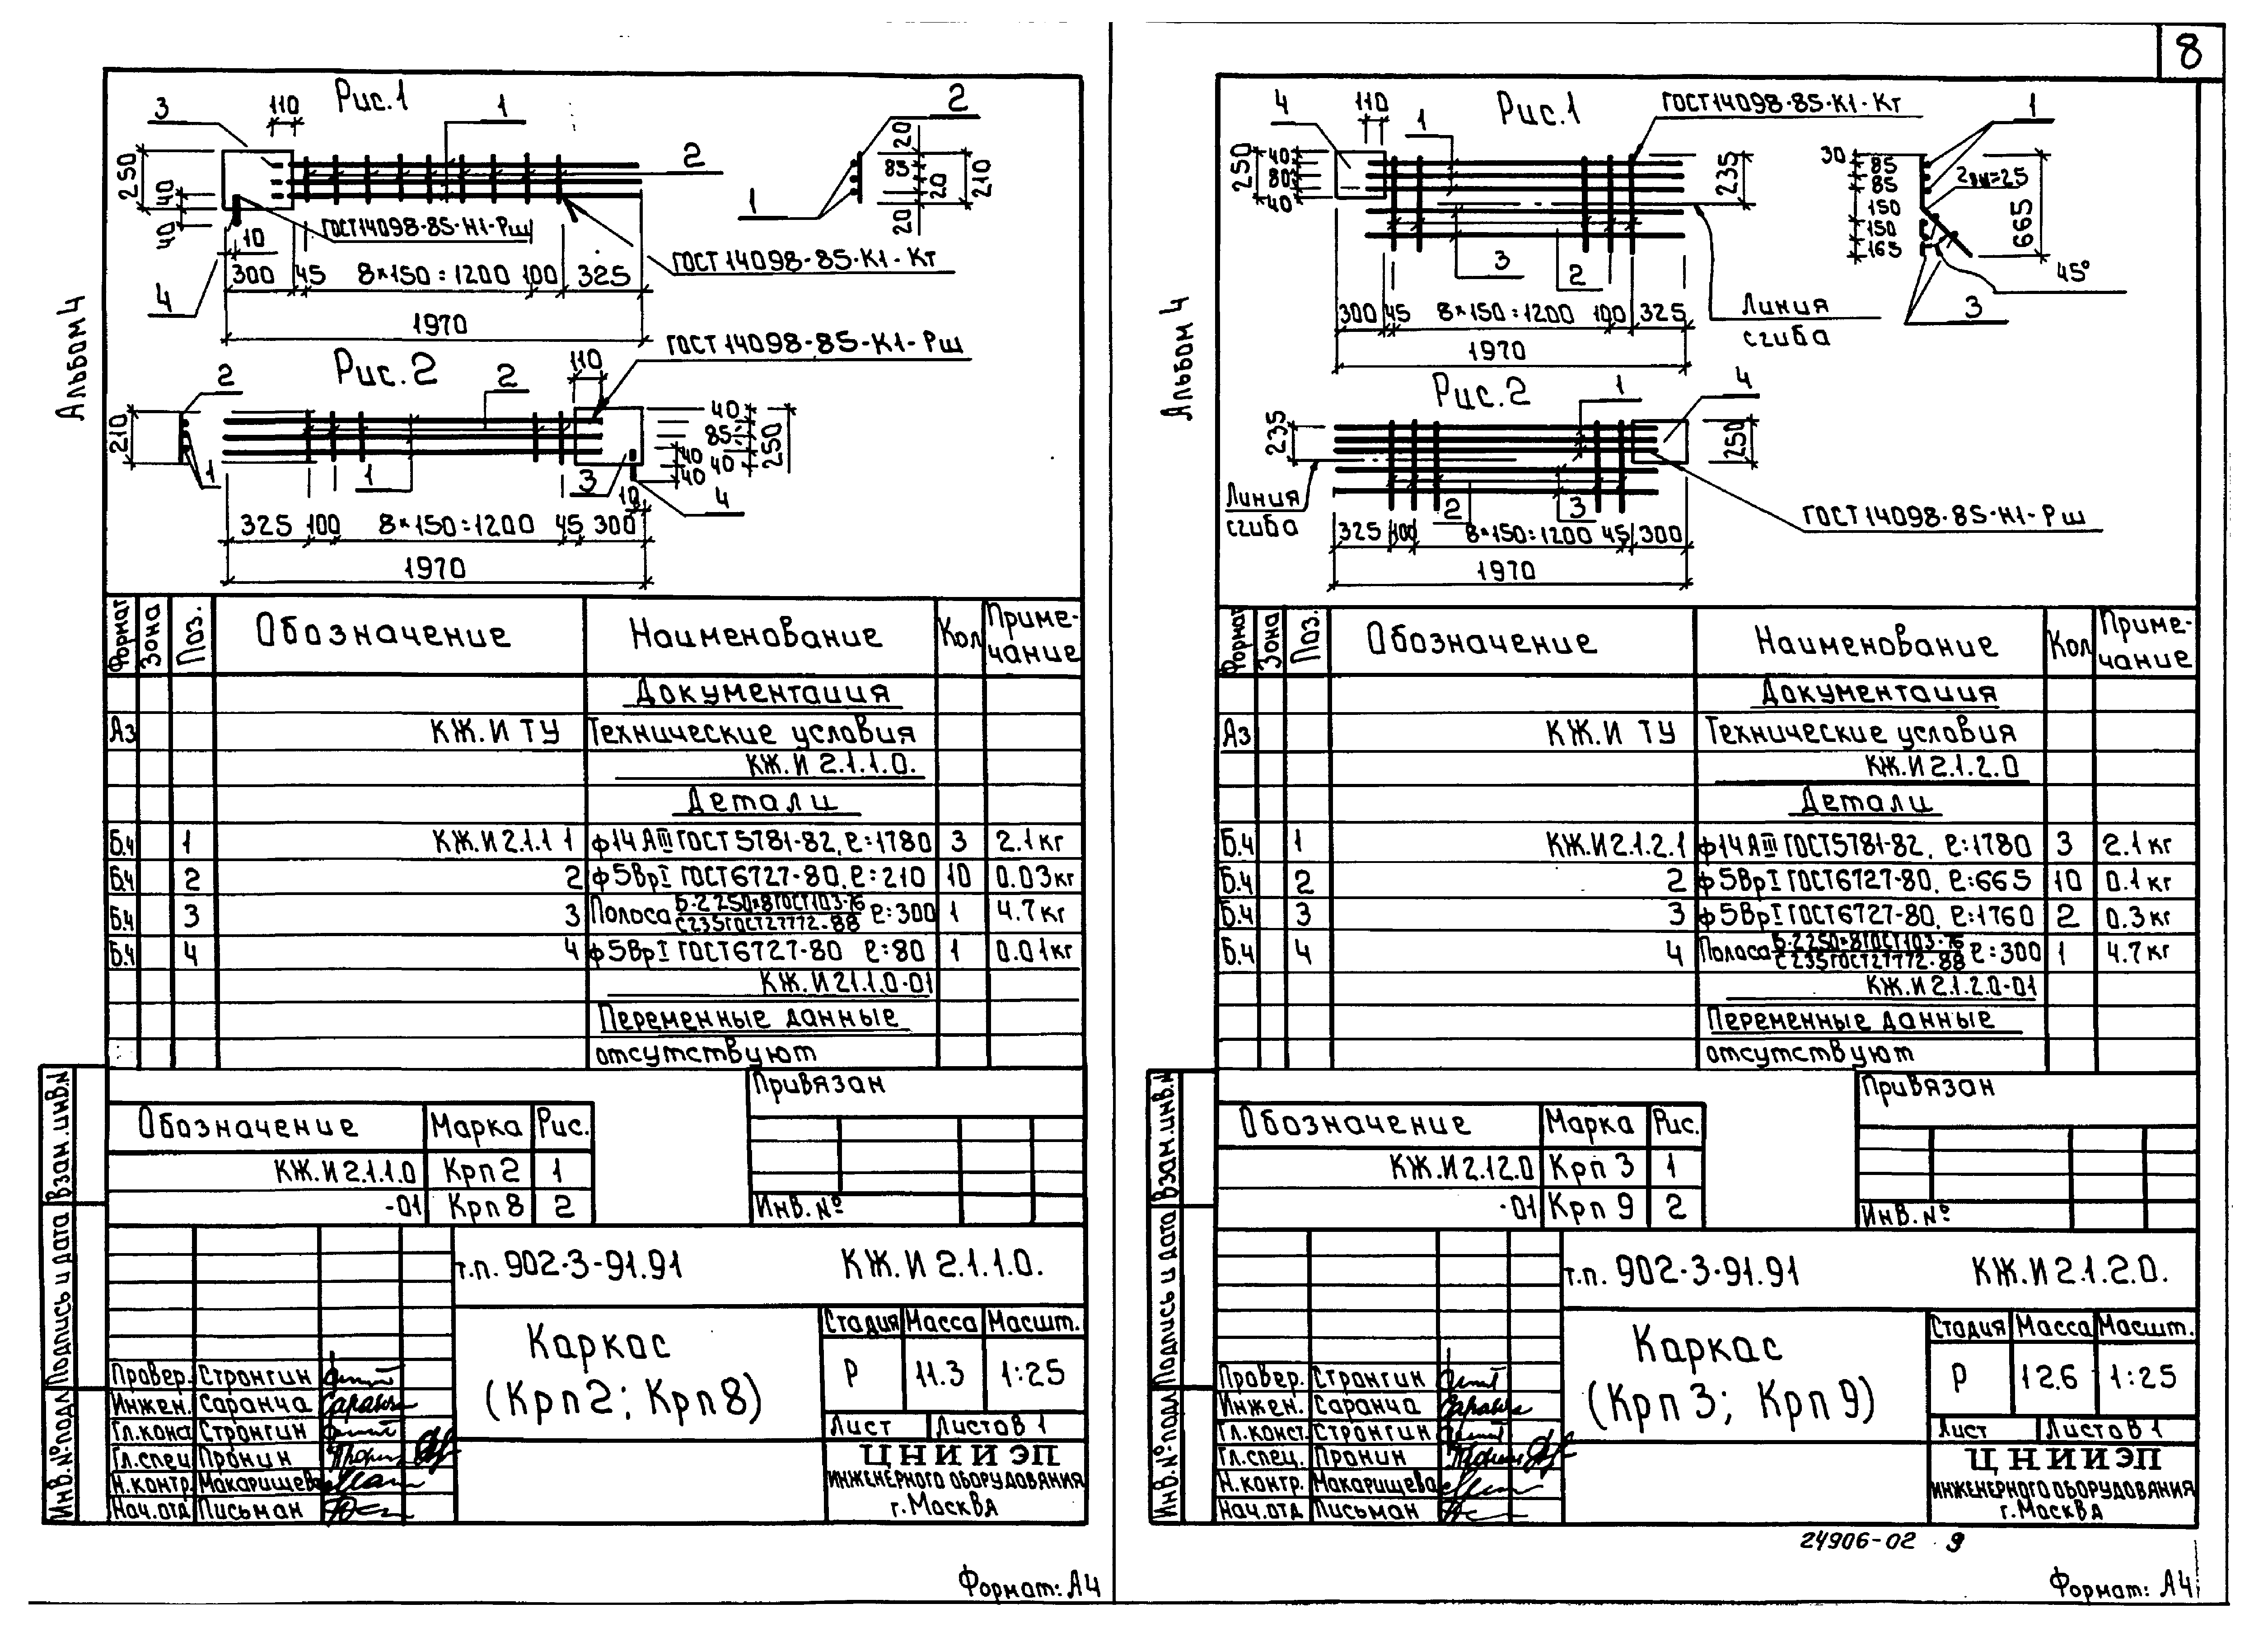 8
Альбом 4
Рис.1
3
110
1
2
2
250
40
40
10
ГОСТ14098-85-Н1-Рш
ГОСТ14098-85-К1-Кт
300 45 8×150=1200 100 325
1970
4
20
85
20
20
210
1
Рис.2
ГОСТ14098-85-К1-Рш
110
2
2
210
1
1
3
4
10
40
85
40
40
40
250
325 100 8×150=1200 45 300
1970
Формат Зона Поз. Обозначение Наименование Кол Приме-чание
Документация
Аз КЖ.И ТУ Технические условия
КЖ.И 2.1.1.0.
Детали
Б.ч 1 КЖ.И 2.1.1 1 ф14АIII ГОСТ 5781-82, ℓ=1780 3 2.1кг
Б.ч 2 2 ф5ВрI ГОСТ6727-80, ℓ=210 10 0.03кг
Б.ч 3 3 Полоса Б-2 250×8 ГОСТ103-76 / С235 ГОСТ27772-88 ℓ=300 1 4.7кг
Б.ч 4 4 ф5ВрI ГОСТ6727-80 ℓ=80 1 0.01кг
КЖ.И 2.1.1.0-01
Переменные данные
отсутствуют
Привязан
Инв.№
Обозначение Марка Рис.
КЖ.И 2.1.1.0 Крп2 1
-01 Крп8 2
Взан.инв.N
Подпись и дата
Инв.№ подл
т.п. 902-3-91.91 КЖ.И 2.1.1.0.
Каркас
(Крп2; Крп8)
Стадия Масса Масшт.
Р 11.3 1:25
Лист Листов 1
ЦНИИЭП
ИНЖЕНЕРНОГО ОБОРУДОВАНИЯ
г.Москва
Провер. Стронгин
Инжен. Саранча
Гл.конст Стронгин
Гл.спец Пронин
Н.контр. Макарищева
Нач.отд Письман
Формат: А4
Альбом 4
Рис.1
4
110
1
ГОСТ14098-85-К1-Кт
250
40
80
40
235
3
2
300 45 8×150=1200 100 325
1970
Линия
сгиба
1
30
85
85
150
150
165
665
45°
3
Рис.2
1
4
235
250
Линия
сгиба
2
3
ГОСТ14098-85-Н1-Рш
325 100 8×150=1200 45 300
1970
Формат Зона Поз. Обозначение Наименование Кол Приме-чание
Документация
Аз КЖ.И ТУ Технические условия
КЖ.И 2.1.2.0
Детали
Б.ч 1 КЖ.И 2.1.2.1 ф14АIII ГОСТ5781-82, ℓ=1780 3 2.1кг
Б.ч 2 2 ф5ВрI ГОСТ6727-80, ℓ=665 10 0.1кг
Б.ч 3 3 ф5ВрI ГОСТ6727-80, ℓ=1760 2 0.3кг
Б.ч 4 4 Полоса Б-2 250×8 ГОСТ103-76 / С235 ГОСТ27772-88 ℓ=300 1 4.7кг
КЖ.И 2.1.2.0-01
Переменные данные
отсутствуют
Привязан
Инв.№
Обозначение Марка Рис.
КЖ.И 2.12.0 Крп 3 1
-01 Крп 9 2
Взан.инв.N
Подпись и дата
Инв.№ подл
т.п. 902-3-91.91 КЖ.И 2.1.2.0.
Каркас
(Крп 3; Крп 9)
Стадия Масса Масшт.
Р 12.6 1:25
Лист Листов 1
ЦНИИЭП
ИНЖЕНЕРНОГО ОБОРУДОВАНИЯ
г.Москва
Провер. Стронгин
Инжен. Саранча
Гл.конст. Стронгин
Гл.спец. Пронин
Н.контр. Макарищева
Нач.отд Письман
24906-02 9
Формат: А4